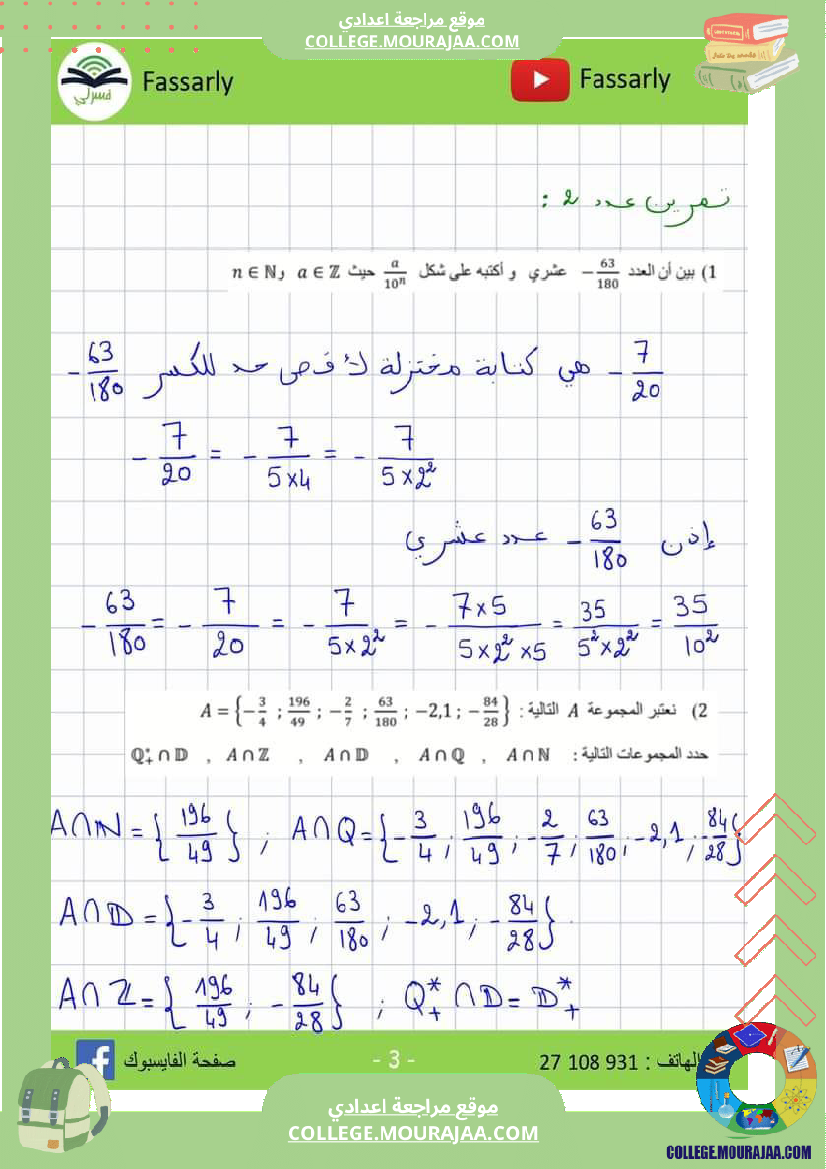 موقع مراجعة اعدادي
COLLEGE.MOURAJAA.COM
فسرلي Fassarly
Fassarly
تمرين عدد 2 :
1) بين أن العدد −63/180 عشري و أكتبه على شكل a/10ⁿ حيث a ∈ ℤ و n ∈ ℕ
−7/20 هي كتابة مختزلة لأقصى حد للكسر −63/180
−7/20 = −7/(5×4) = −7/(5×2²)
إذن −63/180 عدد عشري
−63/180 = −7/20 = −7/(5×2²) = −(7×5)/(5×2²×5) = 35/(5²×2²) = 35/10²
2) نعتبر المجموعة A التالية : A = {−3/4 ; 196/49 ; −2/7 ; 63/180 ; −2,1 ; −84/28}
حدد المجموعات التالية : A∩ℕ , A∩ℚ , A∩𝔻 , A∩ℤ , ℚ₊* ∩ 𝔻
A∩ℕ = {196/49} ; A∩Q = {−3/4 ; 196/49 ; −2/7 ; 63/180 ; −2,1 ; −84/28}
A∩𝔻 = {−3/4 ; 196/49 ; 63/180 ; −2,1 ; −84/28}
A∩ℤ = {196/49 ; −84/28} ; Q₊* ∩ 𝔻 = 𝔻₊*
صفحة الفايسبوك
- 3 -
الهاتف : 27 108 931
موقع مراجعة اعدادي
COLLEGE.MOURAJAA.COM
COLLEGE.MOURAJAA.COM